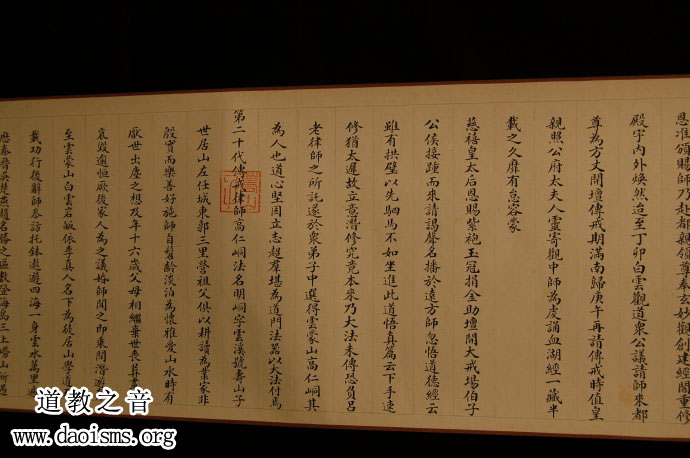 恩准頒賜師乃赴都親領尊奉玄妙觀創建經閣重修
殿宇內外煥然迨至丁卯白雲觀道衆公議請師來都
尊為方丈開壇傳戒期滿南歸庚午再請傳戒時值皇
親照公府太夫人靈寄觀中師為虔誦血湖經一藏半
載之久靡有怠容蒙
慈禧皇太后恩賜紫袍玉冠捐金助壇開大戒場伯子
公侯接踵而來請謁聲名播於遠方師忽悟道德經云
雖有拱璧以先駟馬不如坐進此道悟真篇云下手速
修猶太遲故立意潛修究竟本來乃大法未傳恐負呂
老律師之所託遂於衆弟子中選得雲蒙山高仁峒其
為人也道心堅固立志超羣堪為道門法器以大法付焉
第二十代傳戒律師高仁峒法名明峒字雲溪號壽山子
世居山左任城東鄒三里營祖父俱以耕讀為業家非
殷實而樂善好施師自髫齡淡泊為懷雅愛山水時有
厭世出塵之想及年十六歲父母相繼棄世喪葬
哀毀逾恒厥後家人為之議婚師聞之即乘間潛逃
至雲蒙山白雲名皈依李真人名下為徒居山學道
載功行後辭師參訪托鉢遨遊四海一身雲水萬里
歷秦晉吳楚燕趙名勝之區數登海島三上嶗山所遇
道教之音
www.daoisms.org